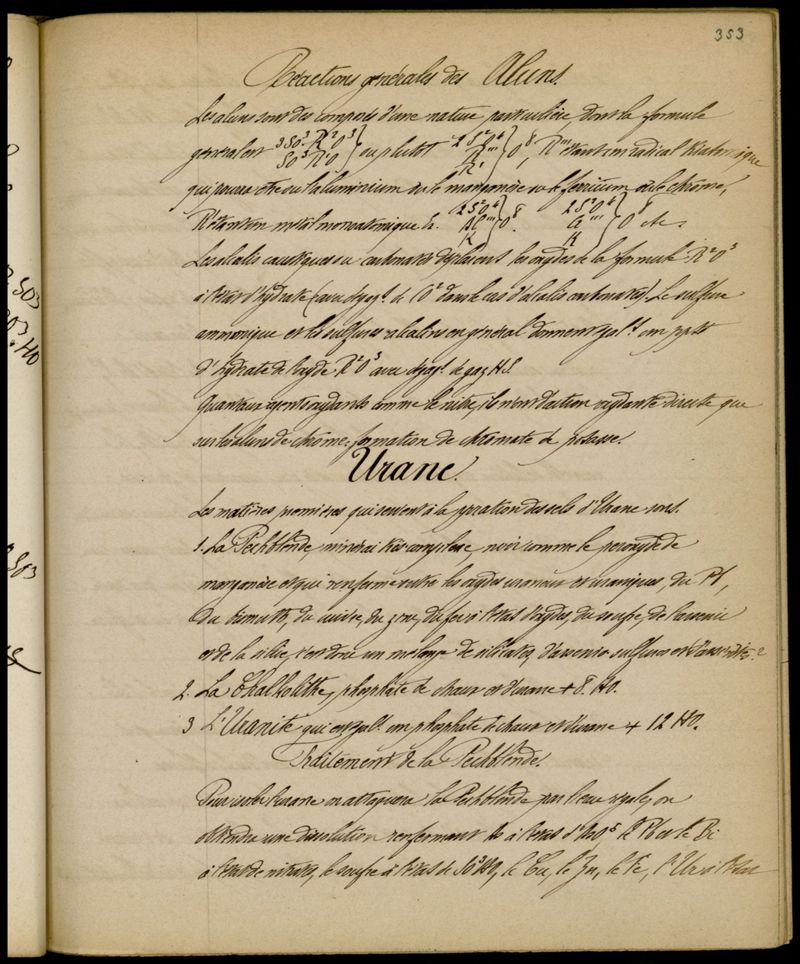 353
Réactions générales des Aluns.
Les aluns sont des composés d'une nature particulière, dont la formule
générale est 3SO³.R²O³ / SO³R²O } ou plutôt 2S²O⁴ / R''' / R' } O⁸, R''' étant un radical triatomique
qui pourra être ou l'aluminium ou le manganèse ou le ferricum ou le chrôme,
R étant un métal monoatomique 2S²O⁴ / Al''' / K } O⁸. 2S²O⁴ / / K } O⁸ etc.
Les alcalis caustiques ou carbonatés déplacent les oxydes de la formule R²O³
à l'état d'hydrate (avec dégagt. de CO² dans le cas d'alcalis carbonatés). Le sulfure
ammonique et les sulfures alcalins en général donnent égalt. un ppté
d'hydrate de l'oxyde R²O³ avec dégagt. de gaz HS
Quant aux agents oxydants comme le nitre, ils n'ont d'action oxydante directe que
sur les aluns de chrôme: formation de chromate de potasse.
Urane.
Les matières premières qui servent à la pération des sels d'Urane sont.
1. La Pechblende, minérai très complexe, noir comme le peroxyde de
manganèse et qui renferme outre les oxydes uraneux et uraniques, du Pb,
du bismuth, du cuivre, du zinc, du fer à l'état d'oxydes, du soufre, de l'arsenic
et de la silice, c'est donc un mélange de silicates, d'arsenio sulfures et d'
2. La Chalkolithe, phosphate de chaux et d'urane + 8. HO.
3 L'Uranite qui est égalt. un phosphate de chaux et d'urane + 12 HO.
Traitement de la Pechblende.
Pour isoler l'urane on attaquera la Pechblende par l'eau régale, on
obtiendra une dissolution renfermant l'As à l'état d'AsO⁵ le Pb et le Bi
à l'état de nitrates, le soufre à l'état de SO³HO, le Cu, le Zn, le Fe, l'Ur à l'état